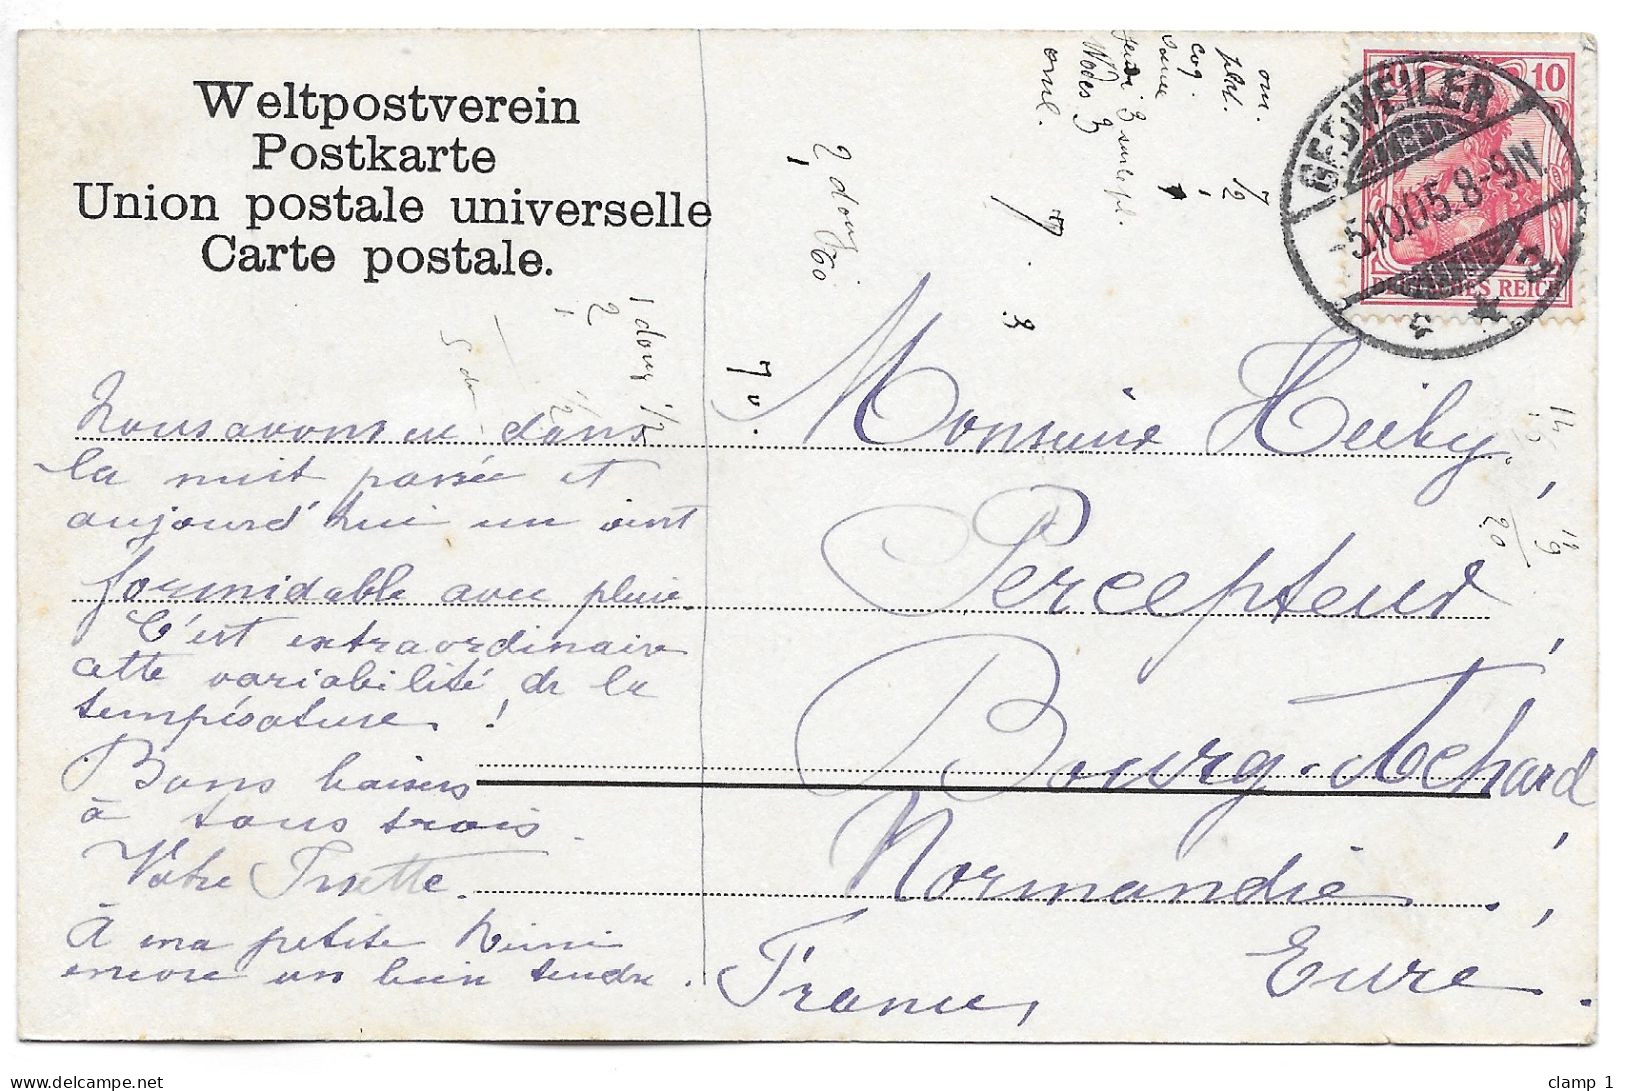 Weltpostverein
Postkarte
Union postale universelle
Carte postale.
10
DEUTSCHES REICH
GEBWEILER
5.10.05.8-9N.
Nous avons eu dans
la nuit passée et
aujourd'hui un vent
formidable avec pluie.
C'est extraordinaire
cette variabilité de la
température !
Bons baisers
à tous trois.
Votre
À ma petite
encore un bien tendre.
Monsieur Heiby,
Percepteur,
Bourg-Achard,
Normandie,
France, Eure.
2 douz
1 douz 1/2
2
1/2
70.
7.3
14
19
20
clamp 1